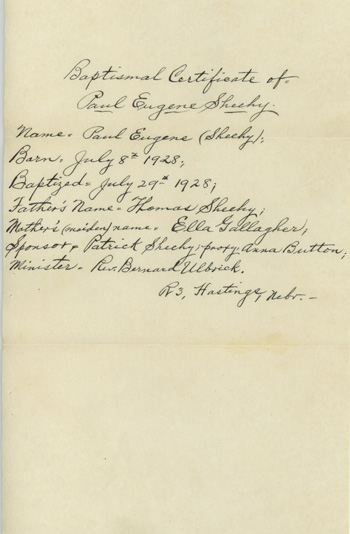 Baptismal Certificate of
Paul Eugene Sheehy.
Name. Paul Eugene (Sheehy);
Born. July 8th 1928;
Baptized. July 29th 1928;
Father's Name. Thomas Sheehy;
Mother's (maiden) name. Ella Gallagher;
Sponsor. Patrick Sheehy proxy. Anna Button;
Minister. Rev. Bernard Ulbrick.
R3, Hastings, Nebr.